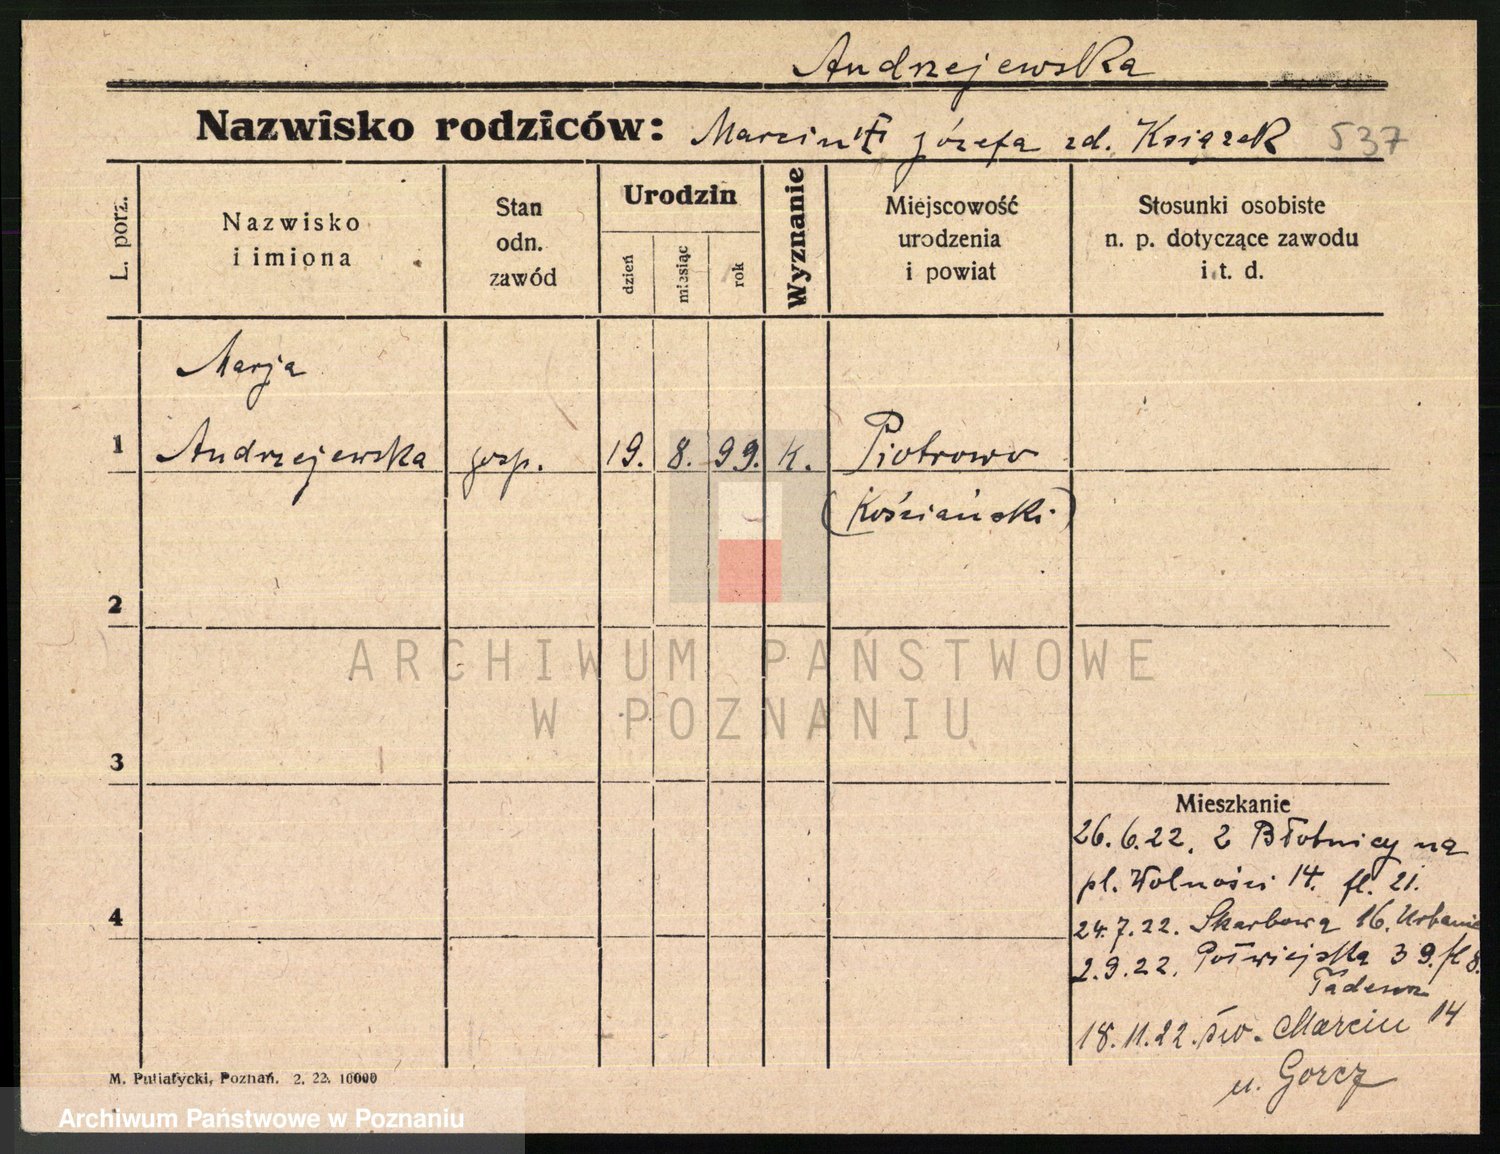 Andrzejewska
Nazwisko rodziców: Marcin i Józefa zd. Książek 537
L. porz.
Nazwisko
i imiona
Stan
odn.
zawód
Urodzin
dzień
miesiąc
rok
Wyznanie
Miejscowość
urodzenia
i powiat
Stosunki osobiste
n. p. dotyczące zawodu
i t. d.
Marja
1 Andrzejewska gosp. 19. 8. 99. K. Piotrowo
(Kościański)
2
ARCHIWUM PAŃSTWOWE
W POZNANIU
3
Mieszkanie
26.6.22. z Błotnicy na
pl. Wolności 14. fl. 21.
4
24.7.22. Skarbowa 16.
2.9.22. Półwiejska 39. fl 8.
18.11.22. św. Marcin 14
u. Gorcz
M. Putiatycki, Poznań. 2. 22. 10000
Archiwum Państwowe w Poznaniu